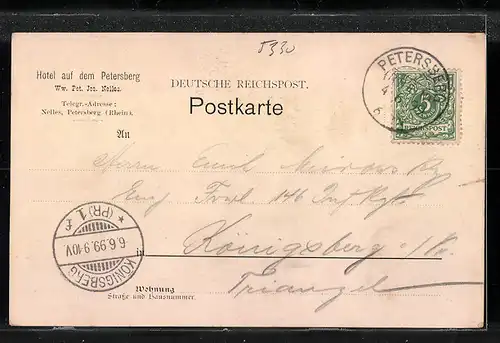 5330
Hotel auf dem Petersberg
Ww. Pet. Jos. Nelles.
Telegr.-Adresse:
Nelles, Petersberg (Rhein).
DEUTSCHE REICHSPOST.
Postkarte
PETERSBERG
5
REICHSPOST
An
Herrn Emil
146
Königsberg i/Pr.
Triangel
in
Wohnung
Straße und Hausnummer.
KÖNIGSBERG
6.6.99.9-10V.
* (PR) 1. f